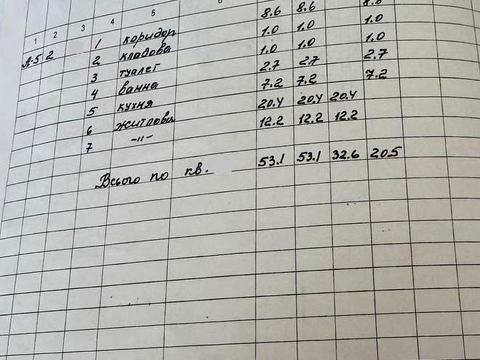 1 2 3 4 5 6
А-5 2 1 коридор 8.6 8.6 8.6
2 кладова 1.0 1.0 1.0
3 туалет 1.0 1.0 1.0
4 ванна 2.7 2.7 2.7
5 кухня 7.2 7.2 7.2
6 житлова 20.4 20.4 20.4
7 -11- 12.2 12.2 12.2
Всього по кв. 53.1 53.1 32.6 20.5